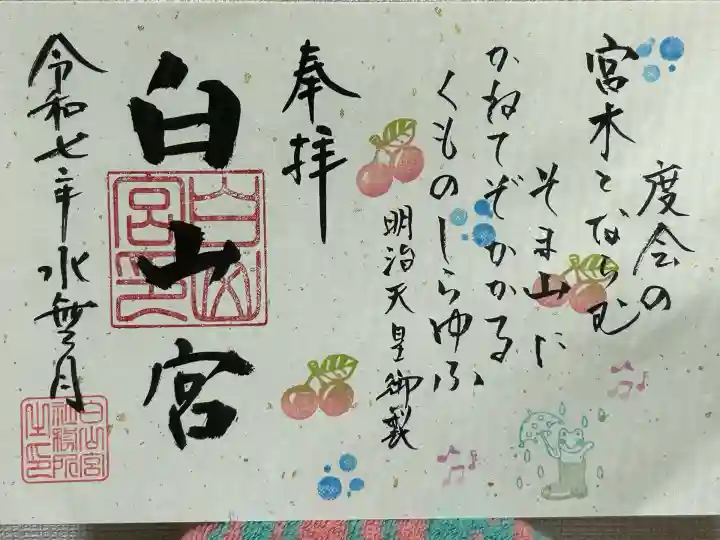 度会の
宮木とならむ
そま山に
かねてぞかかる
くものしらゆふ
明治天皇御製
奉拝
白山宮
白山宮印
令和七年水無月
白山宮社務所之印